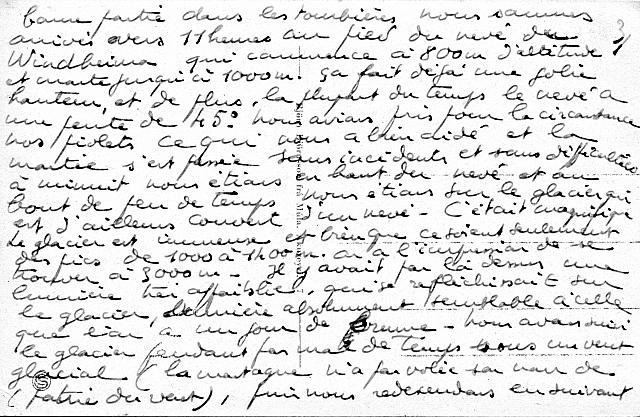 bonne partie dans les tourbières nous sommes
arrivés vers 11 heures au pied du nevé de 3/
Windheima qui commence à 800m d'altitude
et monte jusqu'à 1000m. ça fait déjà une jolie
hauteur, et de plus, la plupart du temps le nevé a
une pente de 45°. Nous avions pris pour la circonstance
nos piolets ce qui nous a bien aidé et la
montée s'est passée sans incidents et sans difficultés
à minuit nous étions en haut du nevé et au
bout de peu de temps nous étions sur le glacier qui
est d'ailleurs couvert d'un nevé - C'était magnifique
Le glacier est immense et bien que ce soient seulement
des pics de 1000 à 1400m. on a l'impression de se
trouver à 3000m - Il y avait par là dessus une
lumière très affaiblie, qui se réfléchissait sur
le glacier, lumière absolument semblable à celle
que l'on a un jour de brume - Nous avons suivi
le glacier pendant pas mal de temps sous un vent
glacial (la montagne n'a pas volé son nom de
(patrie du vent), puis nous redescendons en suivant